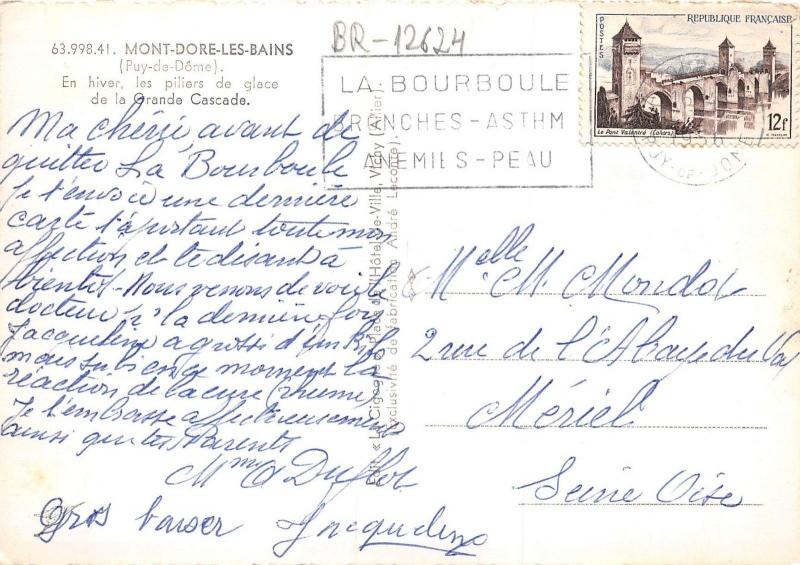 63.998.41. MONT-DORE-LES-BAINS
(Puy-de-Dôme).
En hiver, les piliers de glace
de la Grande Cascade.
BR-12624
LA BOURBOULE
BRONCHES-ASTHM
ANEMIES-PEAU
POSTES
REPUBLIQUE FRANÇAISE
12F
Le Pont Valentré (Cahors)
1956
PUY-DE-DOME
Ma chérie, avant de
quitter La Bourboule
je t'envoie une dernière
carte t'apportant toute mon
affection et te disant à
bientôt - Nous venons de voir le
docteur pr la dernière fois
Jacqueline a grossi d'un K
mais subi en ce moment la
réaction de la cure (rhume)
Je t'embrasse affectueusement
ainsi que tes Parents
Mme A Duflot
Gros baiser Jacqueline
Edit. « La Cigogne » Place de l'Hôtel-de-Ville, Vichy (Allier).
Exclusivité de fabrication André Leconte.
Melle M. Mondot
2 rue de l'Abbaye du Val
Mériel
Seine Oise